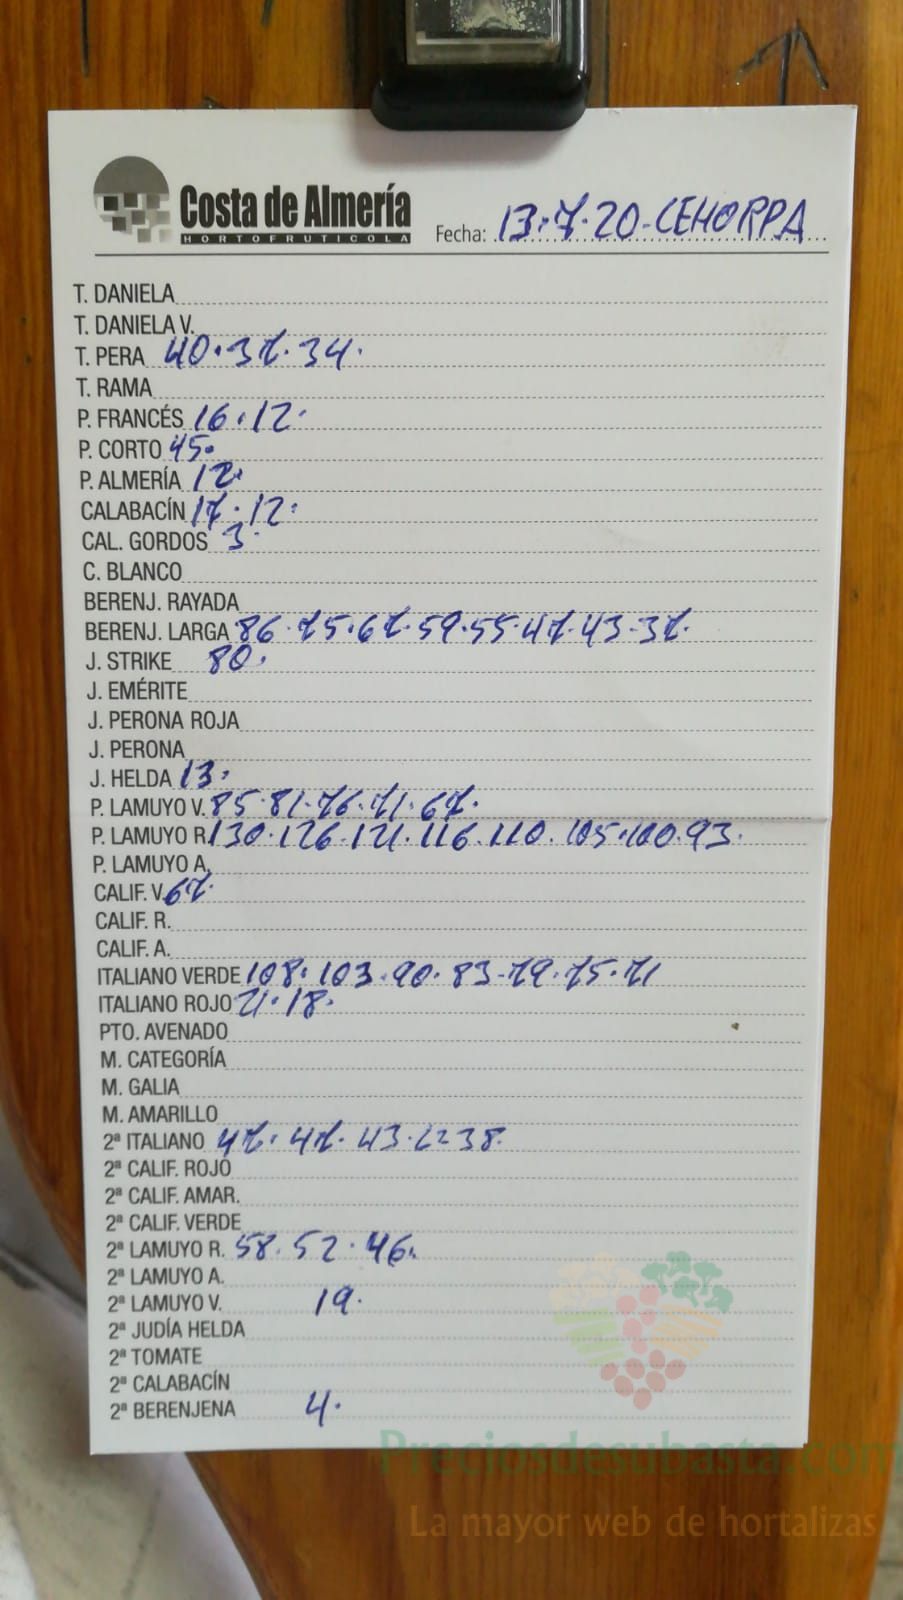 Costa de Almería
HORTOFRUTICOLA
Fecha: 13.7.20-CEHORPA
T. DANIELA
T. DANIELA V.
T. PERA 40.37.34.
T. RAMA
P. FRANCÉS 16.12.
P. CORTO 45.
P. ALMERÍA 12.
CALABACÍN 17.12.
CAL. GORDOS 3.
C. BLANCO
BERENJ. RAYADA
BERENJ. LARGA 86.75.67.59.55.47.43.37.
J. STRIKE 80.
J. EMÉRITE
J. PERONA ROJA
J. PERONA
J. HELDA 13.
P. LAMUYO V. 85.81.76.71.67.
P. LAMUYO R. 130.126.121.116.110.105.100.93.
P. LAMUYO A.
CALIF. V. 67.
CALIF. R.
CALIF. A.
ITALIANO VERDE 108.103.90.83.79.75.71
ITALIANO ROJO 21.18.
PTO. AVENADO
M. CATEGORÍA
M. GALIA
M. AMARILLO
2ª ITALIANO 47.47.43. 38.
2ª CALIF. ROJO
2ª CALIF. AMAR.
2ª CALIF. VERDE
2ª LAMUYO R. 58.52.46.
2ª LAMUYO A.
2ª LAMUYO V. 19.
2ª JUDÍA HELDA
2ª TOMATE
2ª CALABACÍN
2ª BERENJENA 4.
Preciosdesubasta.com
La mayor web de hortalizas